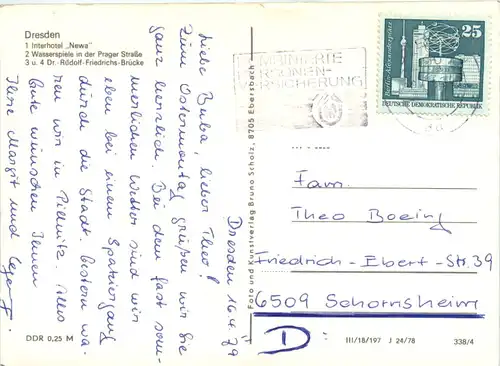 Dresden
1 Interhotel „Newa"
2 Wasserspiele in der Prager Straße
3 u. 4 Dr.-Rudolf-Friedrichs-Brücke
Dresden 16.4.79
Liebe Buba, lieber Theo!
Zum Ostermontag grüßen wir Sie
ganz herzlich. Bei dem fast som-
merlichen Wetter sind wir
eben bei einem Spaziergang
durch die Stadt. Gestern wa-
ren wir in Pillnitz. Alles
Gute wünschen Ihnen
Ihre Margit und
DDR 0,25 M
Foto und Kunstverlag Bruno Scholz, 8705 Ebersbach
KOMBINIERTE
PERSONEN-
VERSICHERUNG
Berlin-Alexanderplatz
25
DEUTSCHE DEMOKRATISCHE REPUBLIK
Fam.
Theo Boeing
Friedrich-Ebert-Str. 39
6509 Schornsheim
D
III/18/197 J 24/78 338/4